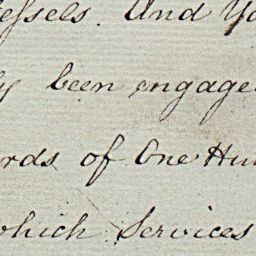 essels. And Yo
y been engage
rds of One Hun
which Services